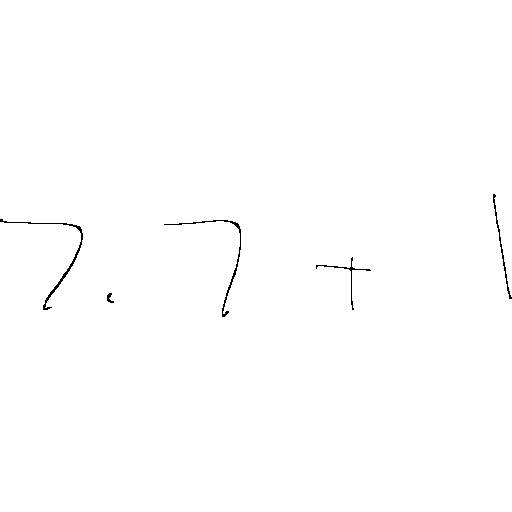 7.7 + 1